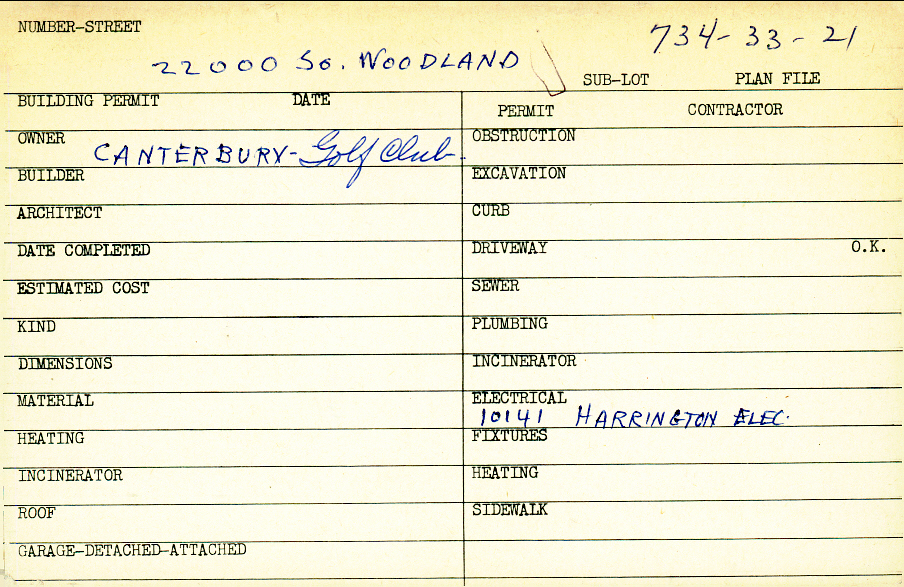 NUMBER-STREET
734-33-21
22000 So. WOODLAND
SUB-LOT PLAN FILE
BUILDING PERMIT DATE
PERMIT CONTRACTOR
OWNER CANTERBURY- Golf Club.
OBSTRUCTION
BUILDER
EXCAVATION
ARCHITECT
CURB
DATE COMPLETED
DRIVEWAY O.K.
ESTIMATED COST
SEWER
KIND
PLUMBING
DIMENSIONS
INCINERATOR
MATERIAL
ELECTRICAL
10141 HARRINGTON ELEC.
HEATING
FIXTURES
INCINERATOR
HEATING
ROOF
SIDEWALK
GARAGE-DETACHED-ATTACHED